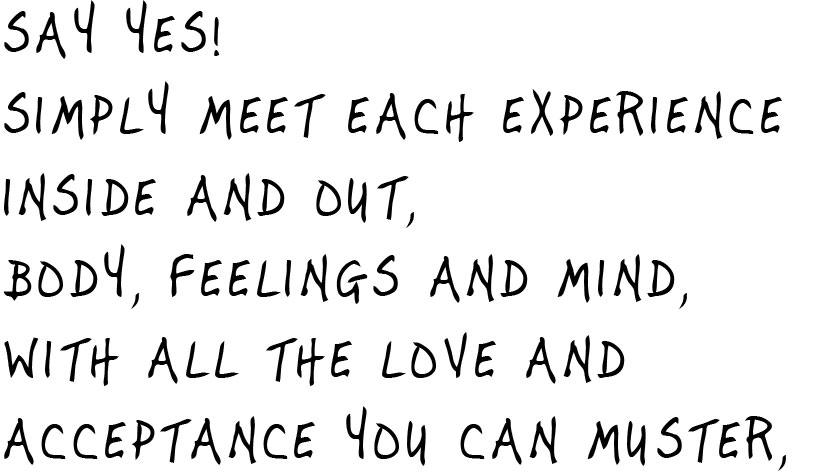 SAY YES!
SIMPLY MEET EACH EXPERIENCE
INSIDE AND OUT,
BODY, FEELINGS AND MIND,
WITH ALL THE LOVE AND
ACCEPTANCE YOU CAN MUSTER,